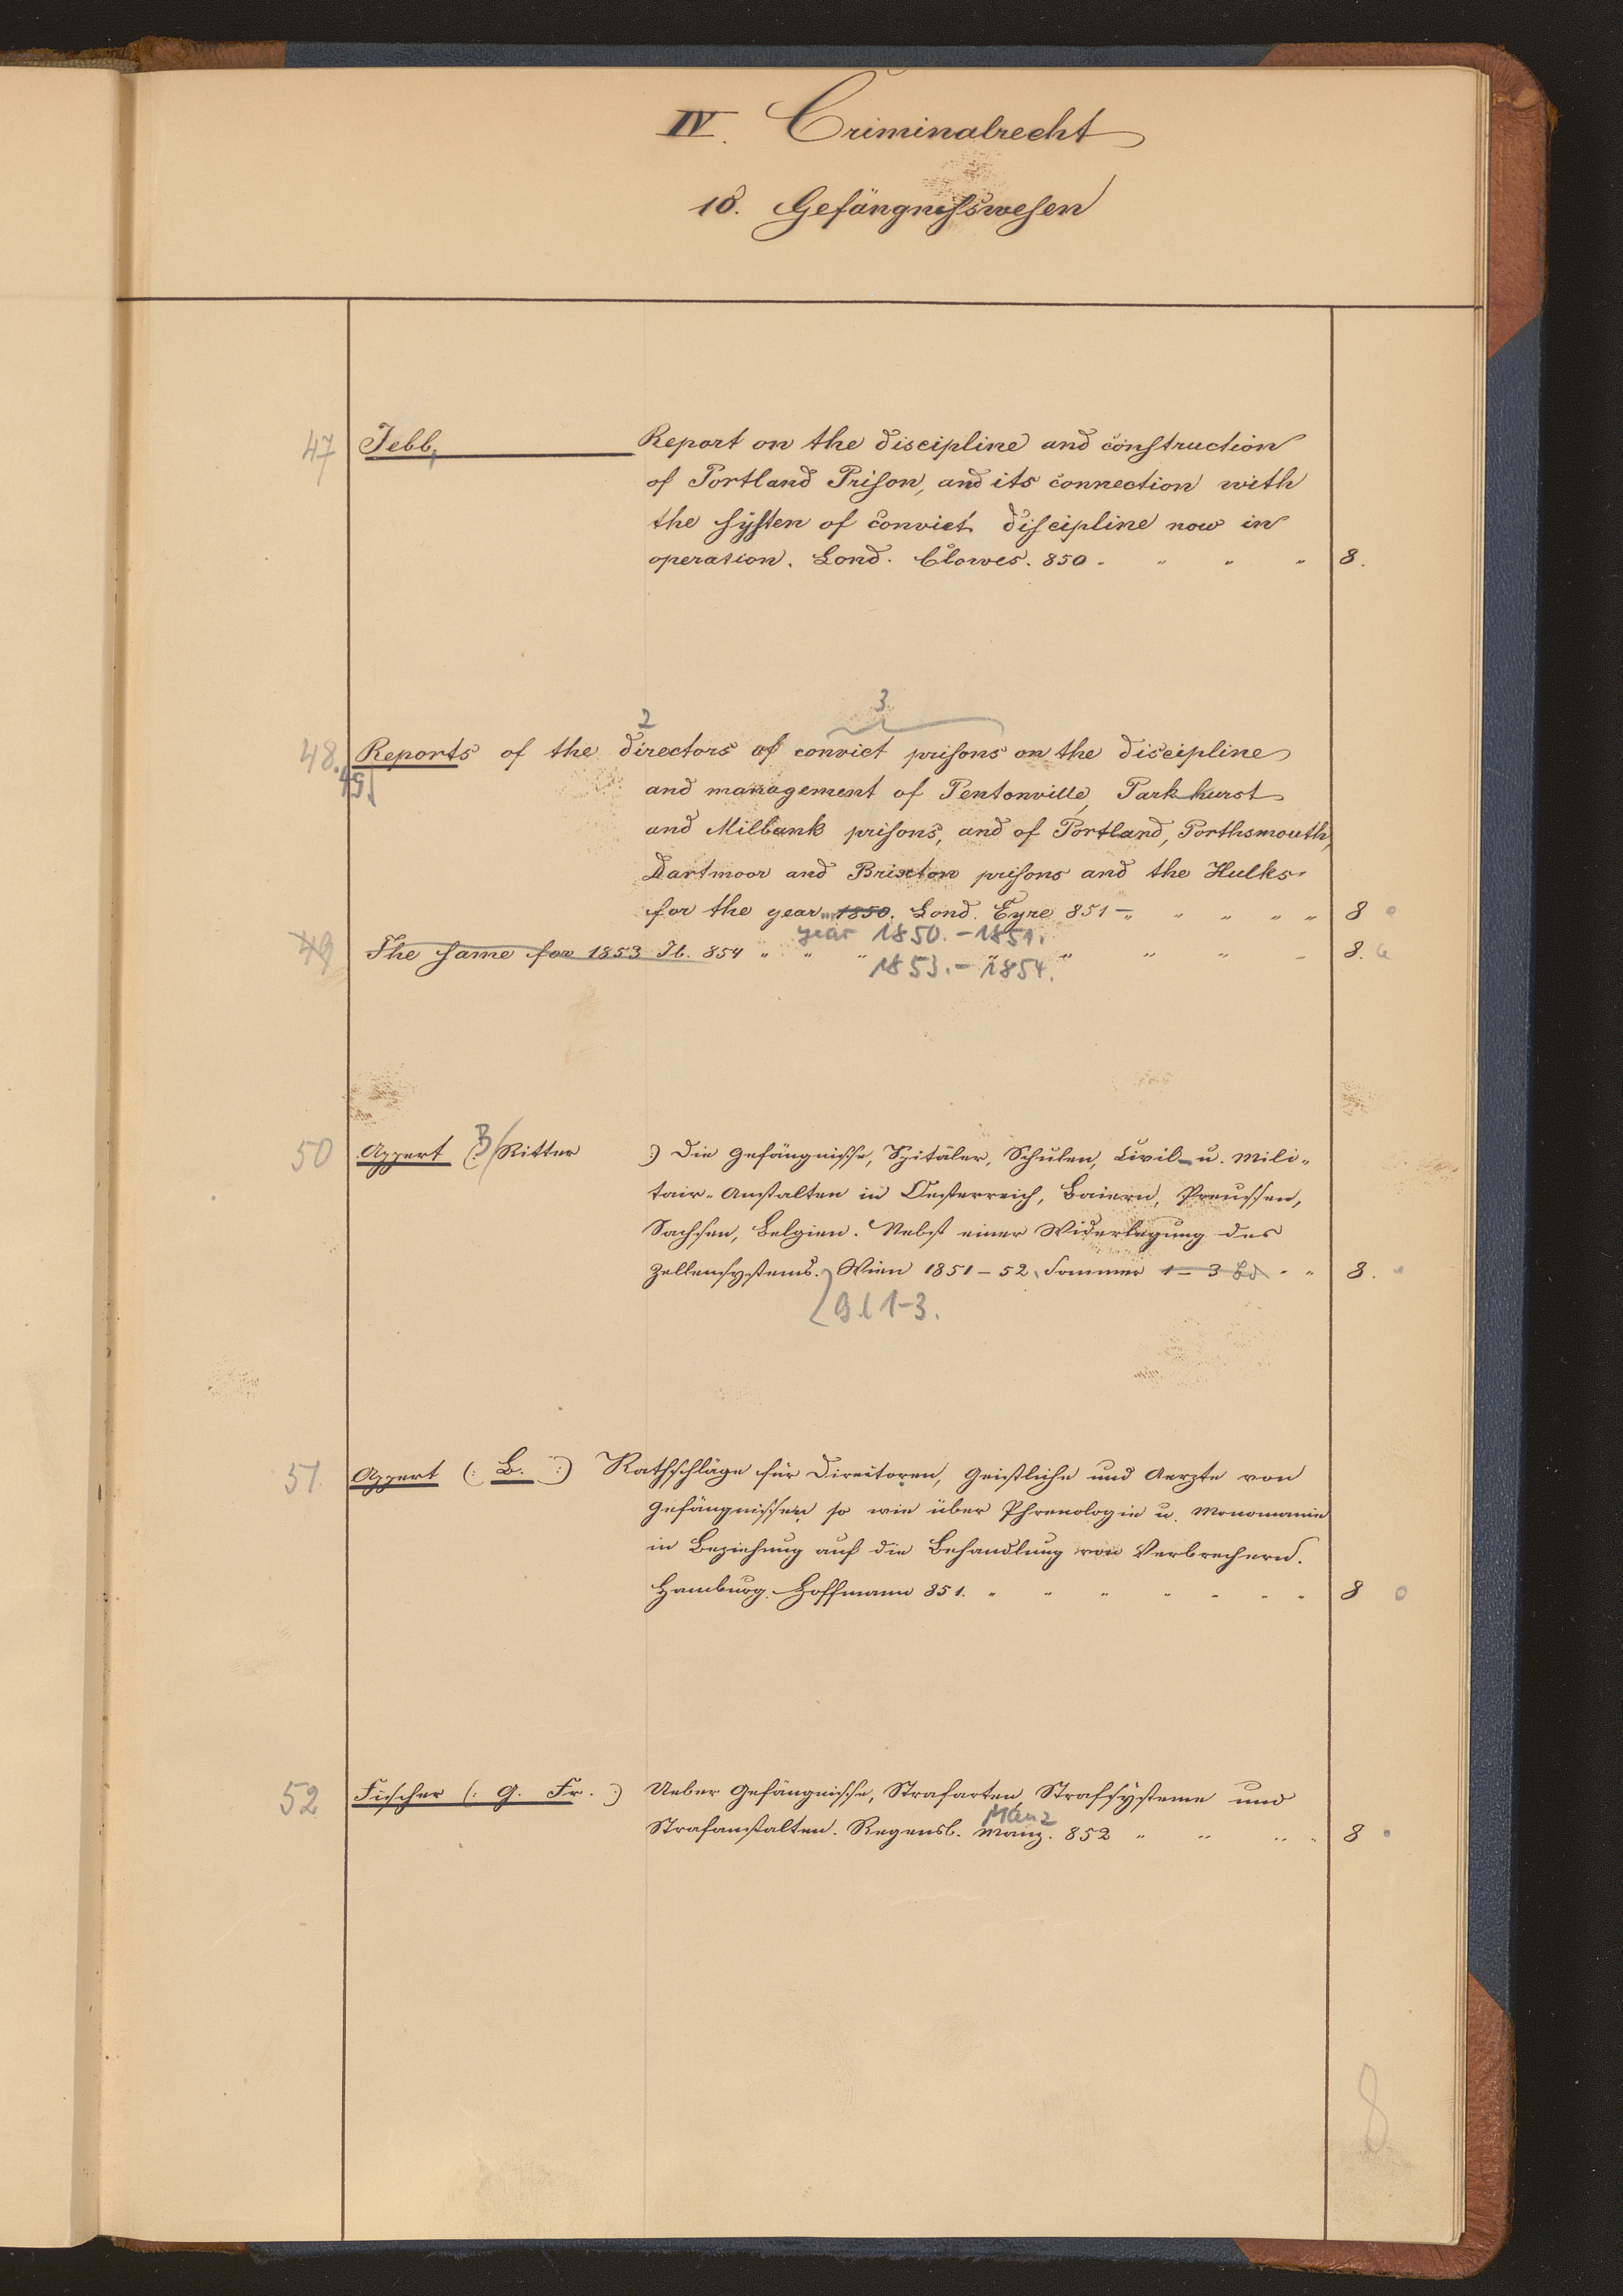 IV. Criminalrecht
10. Gefängnisswesen
47 Jebb, Report on the discipline and construction
of Portland Prison, and its connection with
the systen of convict discipline now in
operation. Lond. Clowes. 850. " " " 8.
2 3
48. Reports of the directors of convict prisons on the discipline
49.
and management of Pentonville, Parkhurst
and Milbank prisons, and of Portland, Porthsmouth,
Dartmoor and Brixton prisons and the Hulks
for the year 1850. Lond. Eyre 851 – " " " " " 8
year 1850.-1851.
49 The same for 1853 Ib. 854 " " " " " " " 8.
1853.-1854.
50 Appert (: B/ Ritter :) Die Gefängnisse, Spitäler, Schulen, Civil- u. Mili-
tair-Anstalten in Oesterreich, Baiern, Preussen,
Sachsen, Belgien. Nebst einer Widerlegung des
Zellensystems. Wien 1851–52, Sommer 1–3 Bd " " 8.
1-3.
51. Appert (: B. :) Rathschläge für Directoren, Geistliche und Aerzte von
Gefängnissen so wie über Phrenologie u. Monomanie
in Beziehung auf die Behandlung von Verbrechern.
Hamburg. Hoffmann 851. " " " " " " " 8
52 Füscher (: G. Fr. :) Ueber Gefängnisse, Strafarten, Strafsysteme und
Manz
Strafanstalten. Regensb. Manz. 852 " " " " 8
8